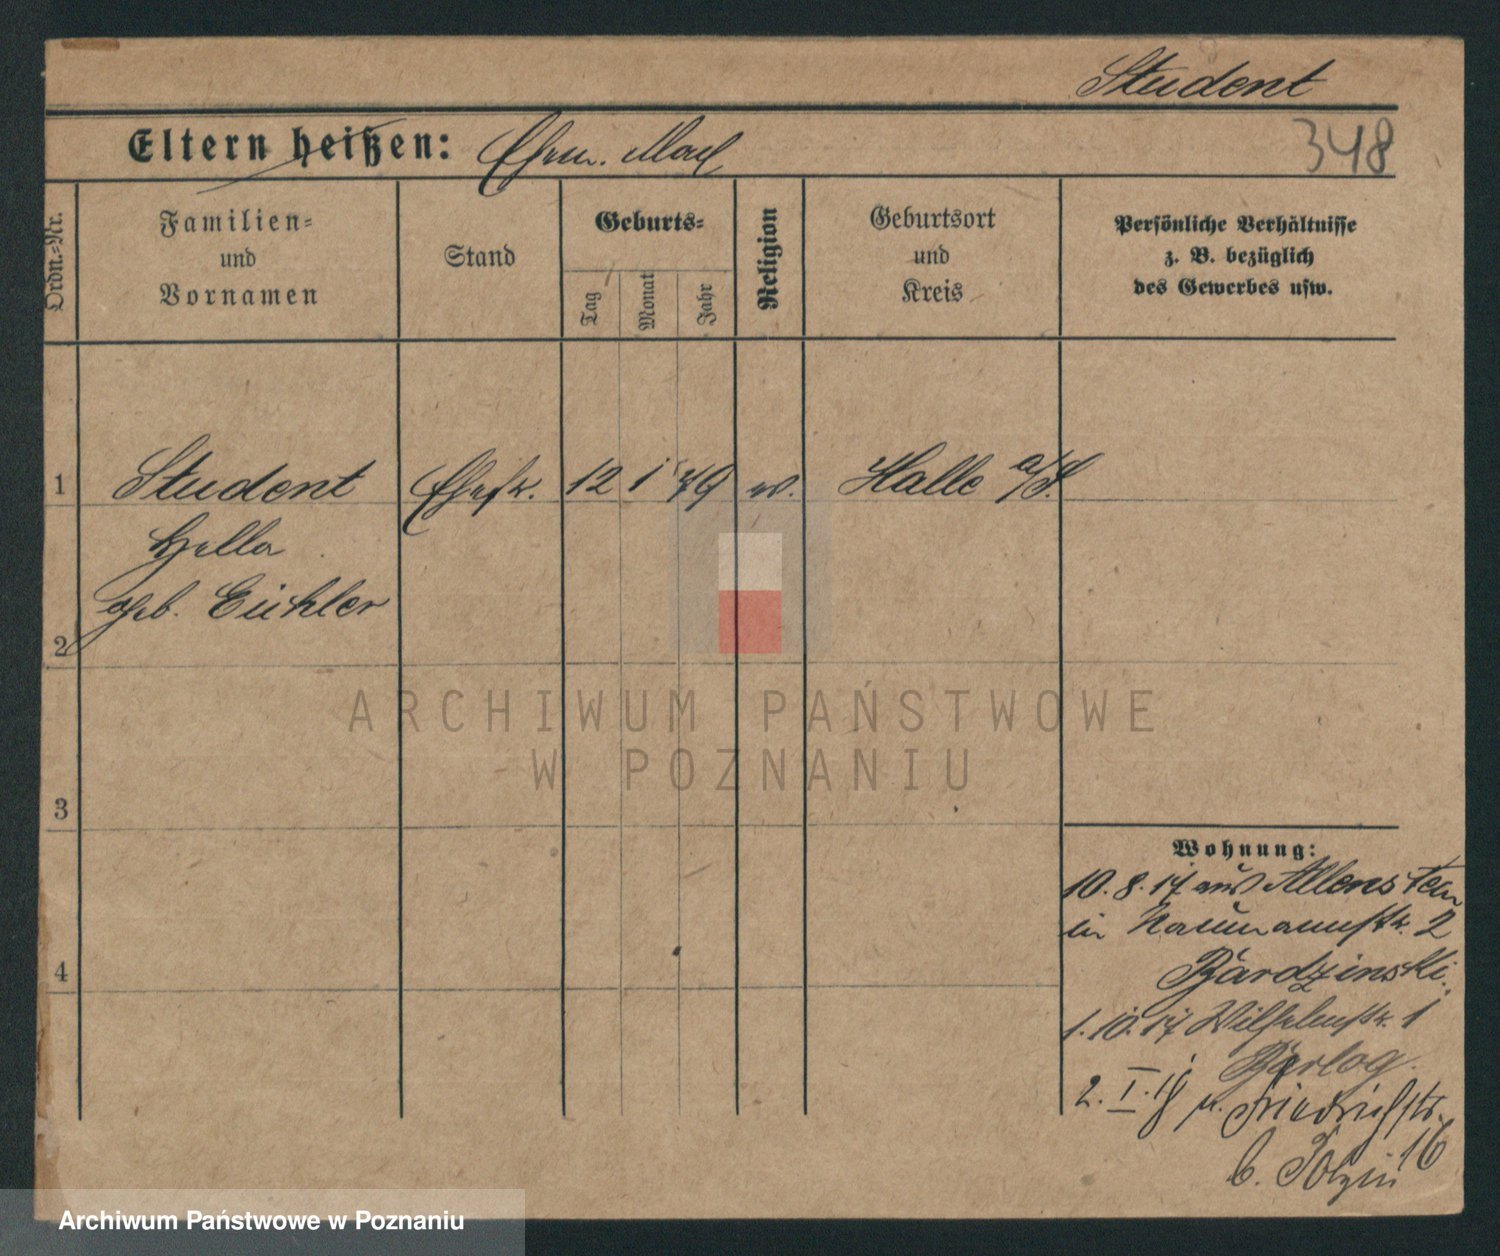 Student
Eltern heißen: Ehem. Max
348
Ordn.-Nr.
Familien-
und
Vornamen
Stand
Geburts-
Tag
Monat
Jahr
Religion
Geburtsort
und
Kreis
Persönliche Verhältnisse
z. B. bezüglich
des Gewerbes usw.
1 Student Ehefr. 12 1 79 ev. Halle a/S.
Hella
geb. Eichler
2
3
4
Wohnung:
10.8.17 aus Allenstein
in Naumannstr. 2
Bardzinski.
1.10.17 Wilhelmstr. 1
Barlog.
2.I.18 n. Friedrichstr.
16
b. Polzin
ARCHIWUM PAŃSTWOWE
W POZNANIU
Archiwum Państwowe w Poznaniu